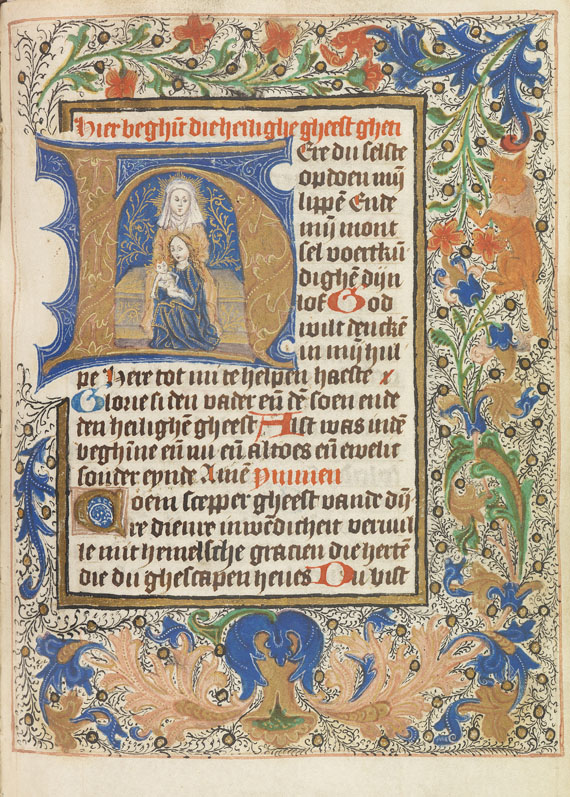 Hier beghīt die heilighe gheest ghetī
HEre du selste
opdoen mij
lippē Ende
mij mont
sel voertkū
dighē dijn
lof God
wilt denckē
in mij hul
pe Here tot mi te helpen haeste
Glorie si den vader eñ dē soen ende
den heilighē gheest Alst was indē
beghīne eñ nu eñ altoes eñ ewelic
sonder eynde Amē Ymnen
Coem scepper gheest vande dīi
re dienre inwēdicheit vervul
le mit hemelsche gracien die hertē
die du ghescapen heues Du bist